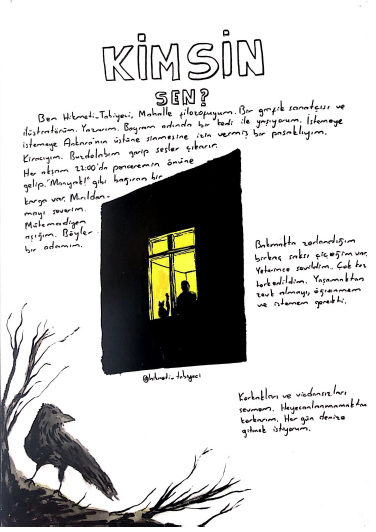 KİMSİN
SEN?
Ben Hikmeti-Tabiyeci, Mahalle filozofuyum. Bir grafik sanatçısı ve
illüstratörüm. Yazarım. Bayram adında bir kedi ile yaşıyorum. İstemeye
istemeye Ankara'nın üstüne sinmesine izin vermiş bir pasaklıyım.
Kiracıyım. Buzdolabım garip sesler çıkarır.
Her akşam 22:00'da penceremin önüne
gelip "Manyak!" gibi bağıran bir
karga var. Mırıldan-
mayı severim.
Mütemadiyen
aşığım. Böyle
bir adamım.
Bakmakta zorlandığım
birkaç saksı çiçeğim var.
Yeterince sevildim. Çok kez
terkedildim. Yaşamaktan
zevk almayı, öğrenmem
ve istemem gerekti.
@hikmeti_tabiyeci
Korkakları ve vicdansızları
sevmem. Heyecanlanmamaktan
korkarım. Her gün denize
gitmek istiyorum.